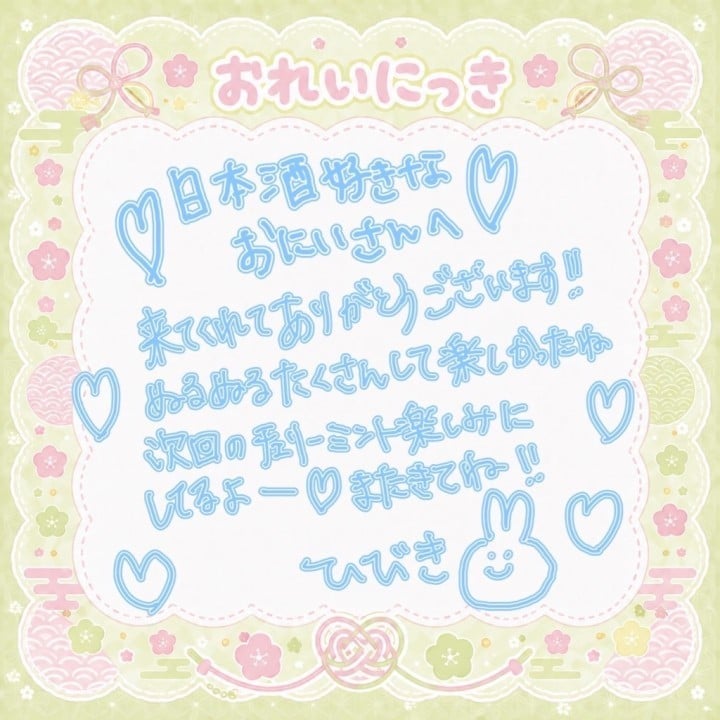 おれいにっき
日本酒好きな
おにいさんへ
来てくれてありがとうございます!!
ぬるぬるたくさんして楽しかったね
次回のチェリーミント楽しみに
してるよー♡またきてね!!
ひびき